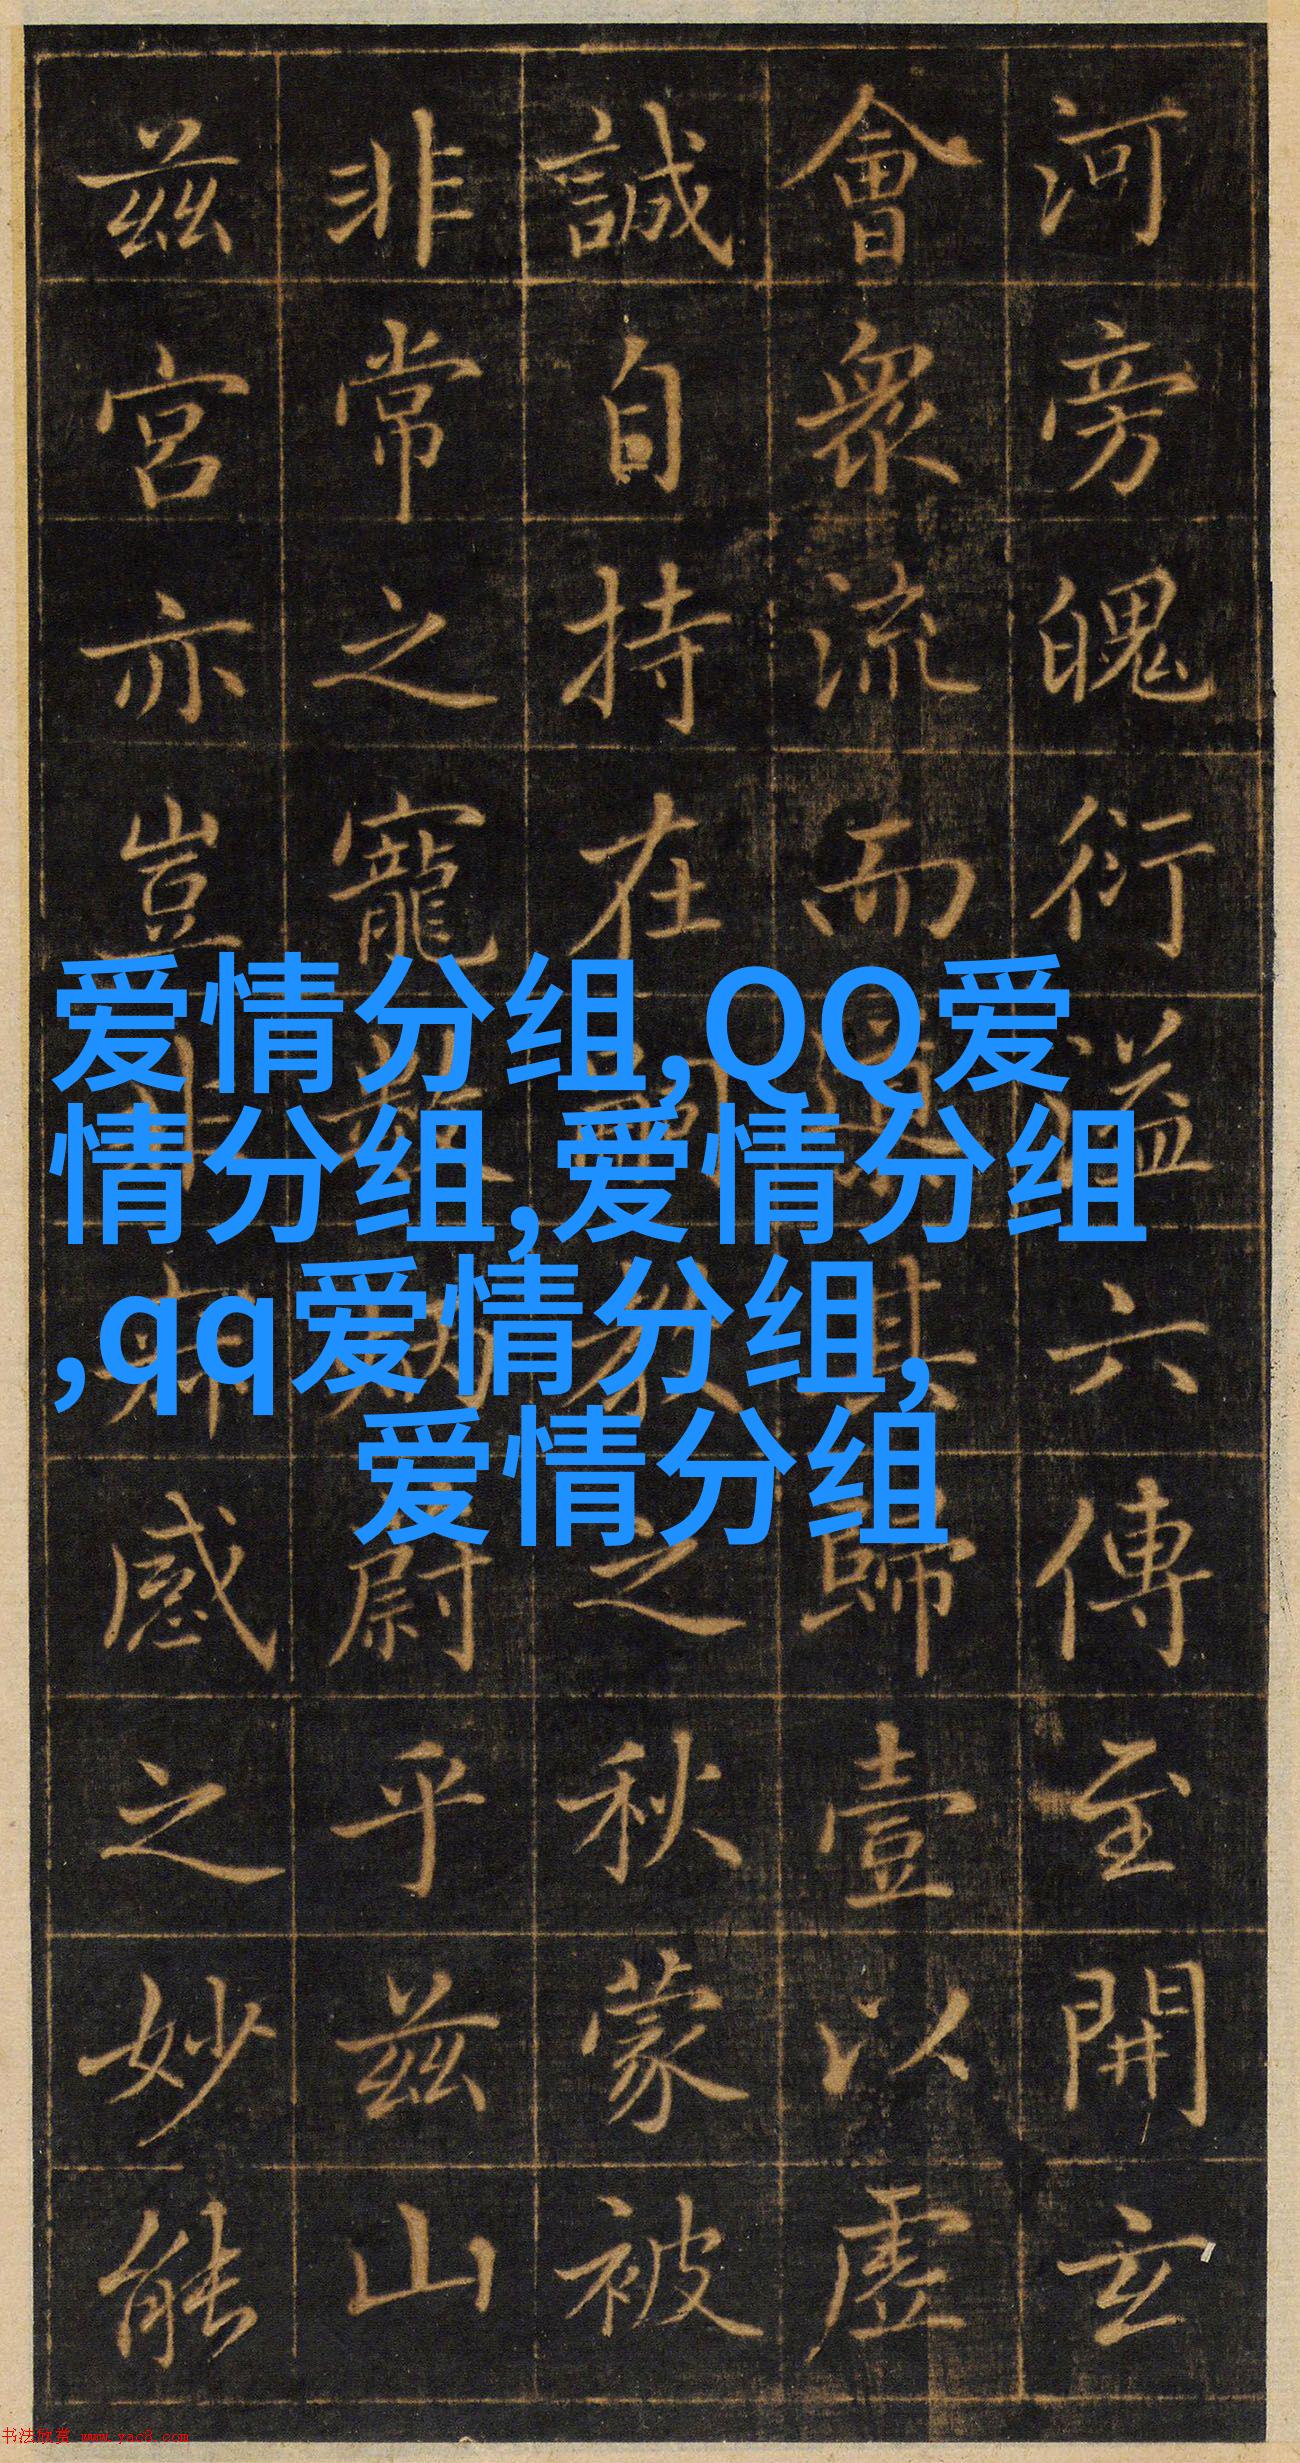 爱情分组,QQ爱
情分组,爱情分组
,qq爱情分组,
爱情分组
河旁魄衍溢六傳至開玄
會衆流而其歸壹以虛
誠自持在教之秋蒙被
非常之寵尉乎茲山
茲宮亦豈感之妙能
书法欣赏 www.yac8.com